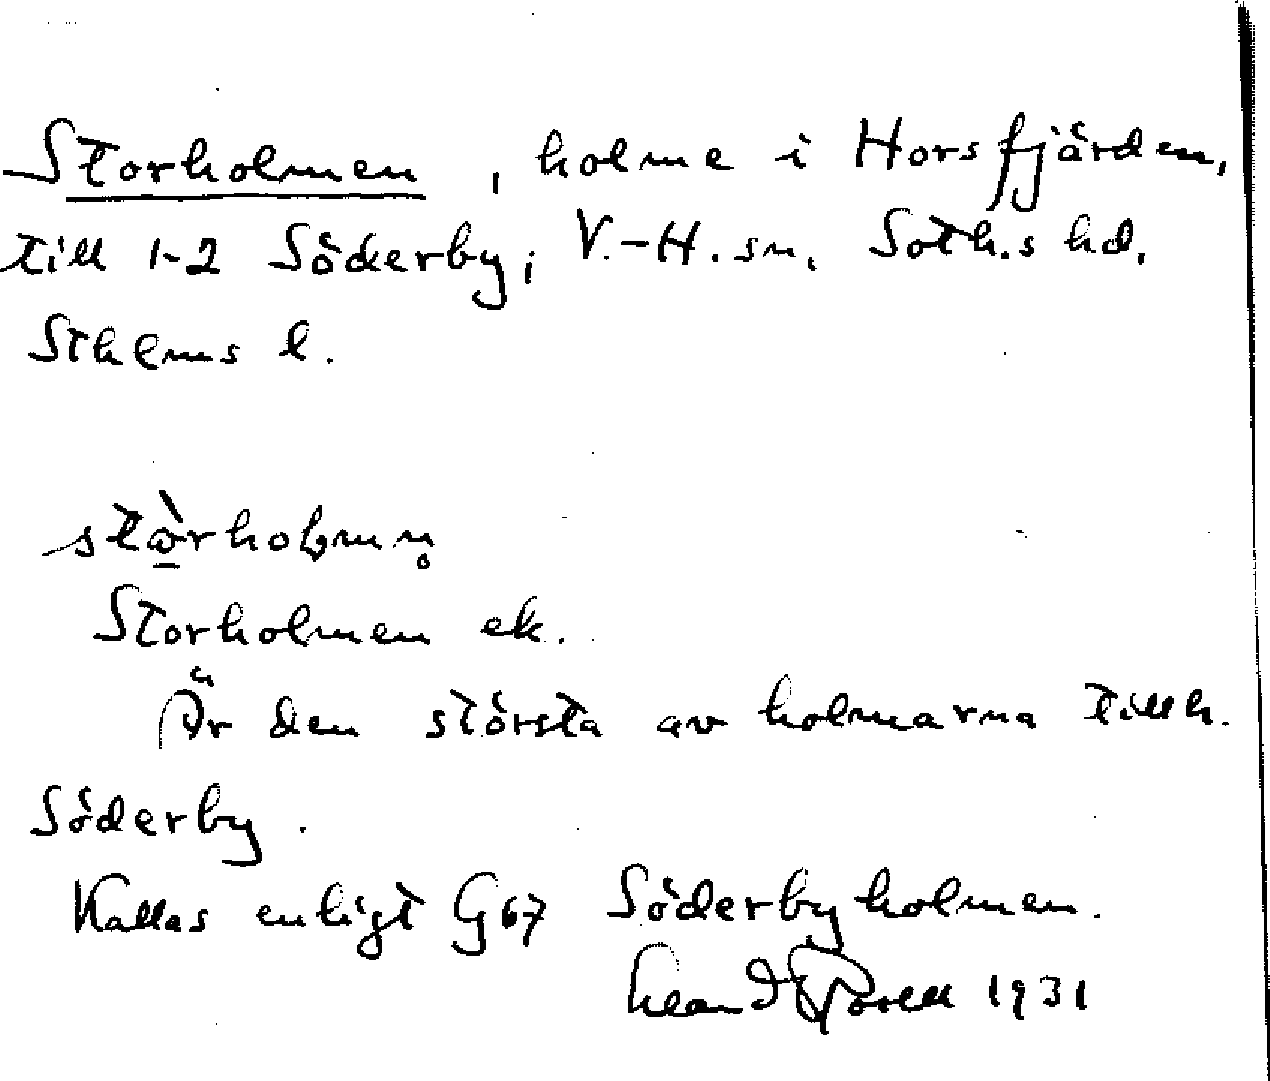 Storholmen, holme i Horsfjärden,
till 1-2 Söderby, V.-H. sn, Soth.s hd,
Sthlms l.
stòrholmn̥
Storholmen ek.
Är den största av holmarna tillh.
Söderby.
Kallas enligt G67 Söderbyholmen.
1931